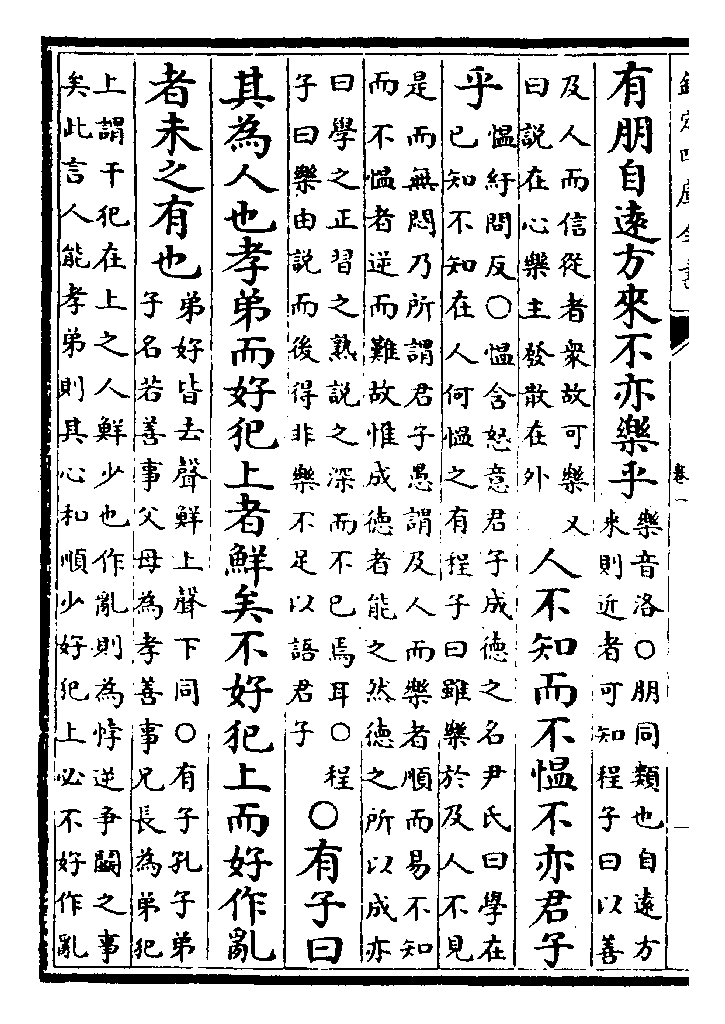 欽定四庫全書
卷一
有朋自遠方來不亦樂乎
樂音洛○朋同類也自遠方
來則近者可知程子曰以善
及人而信從者衆故可樂又
曰説在心樂主發散在外
人不知而不愠不亦君子
乎
愠紆問反○愠含怒意君子成德之名尹氏曰學在
已知不知在人何愠之有程子曰雖樂於及人不見
是而無悶乃所謂君子愚謂及人而樂者順而易不知
而不愠者逆而難故惟成德者能之然德之所以成亦
曰學之正習之熟説之深而不已焉耳○程
子曰樂由説而後得非樂不足以語君子
○有子曰
其為人也孝弟而好犯上者鮮矣不好犯上而好作亂
者未之有也
弟好皆去聲鮮上聲下同○有子孔子弟
子名若善事父母為孝善事兄長為弟犯
上謂干犯在上之人鮮少也作亂則為悖逆争鬭之事
矣此言人能孝弟則其心和順少好犯上必不好作亂